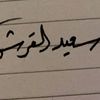 سعيد القرشي